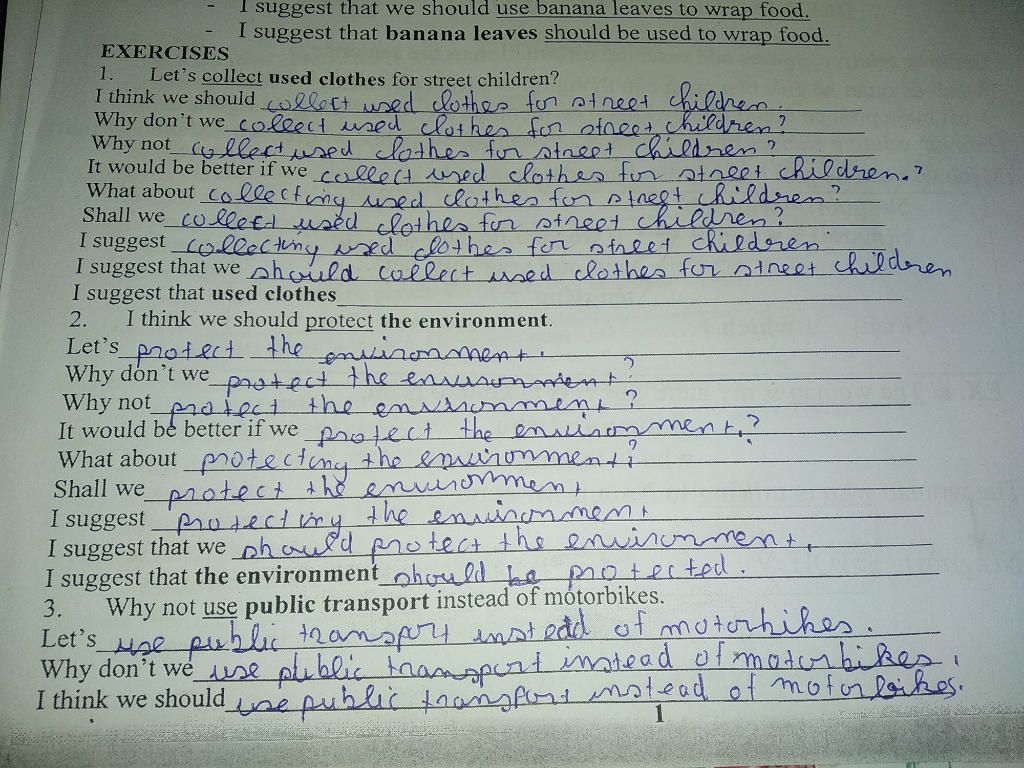 - I suggest that we should use banana leaves to wrap food.
- I suggest that banana leaves should be used to wrap food.
EXERCISES
1. Let's collect used clothes for street children?
I think we should collect used clothes for street children.
Why don't we collect used clothes for street children?
Why not collect used clothes for street children?
It would be better if we collect used clothes for street children.?
What about collecting used clothes for street children?
Shall we collect used clothes for street children?
I suggest collecting used clothes for street children
I suggest that we should collect used clothes for street children
I suggest that used clothes
2. I think we should protect the environment.
Let's protect the environment.
Why don't we protect the environment?
Why not protect the environment?
It would be better if we protect the environment.?
What about protecting the environment?
Shall we protect the environment
I suggest protecting the environment
I suggest that we should protect the environment.
I suggest that the environment should be protected.
3. Why not use public transport instead of motorbikes.
Let's use public transport instead of motorbikes.
Why don't we use public transport instead of motorbikes.
I think we should use public transport instead of motorbikes.
1